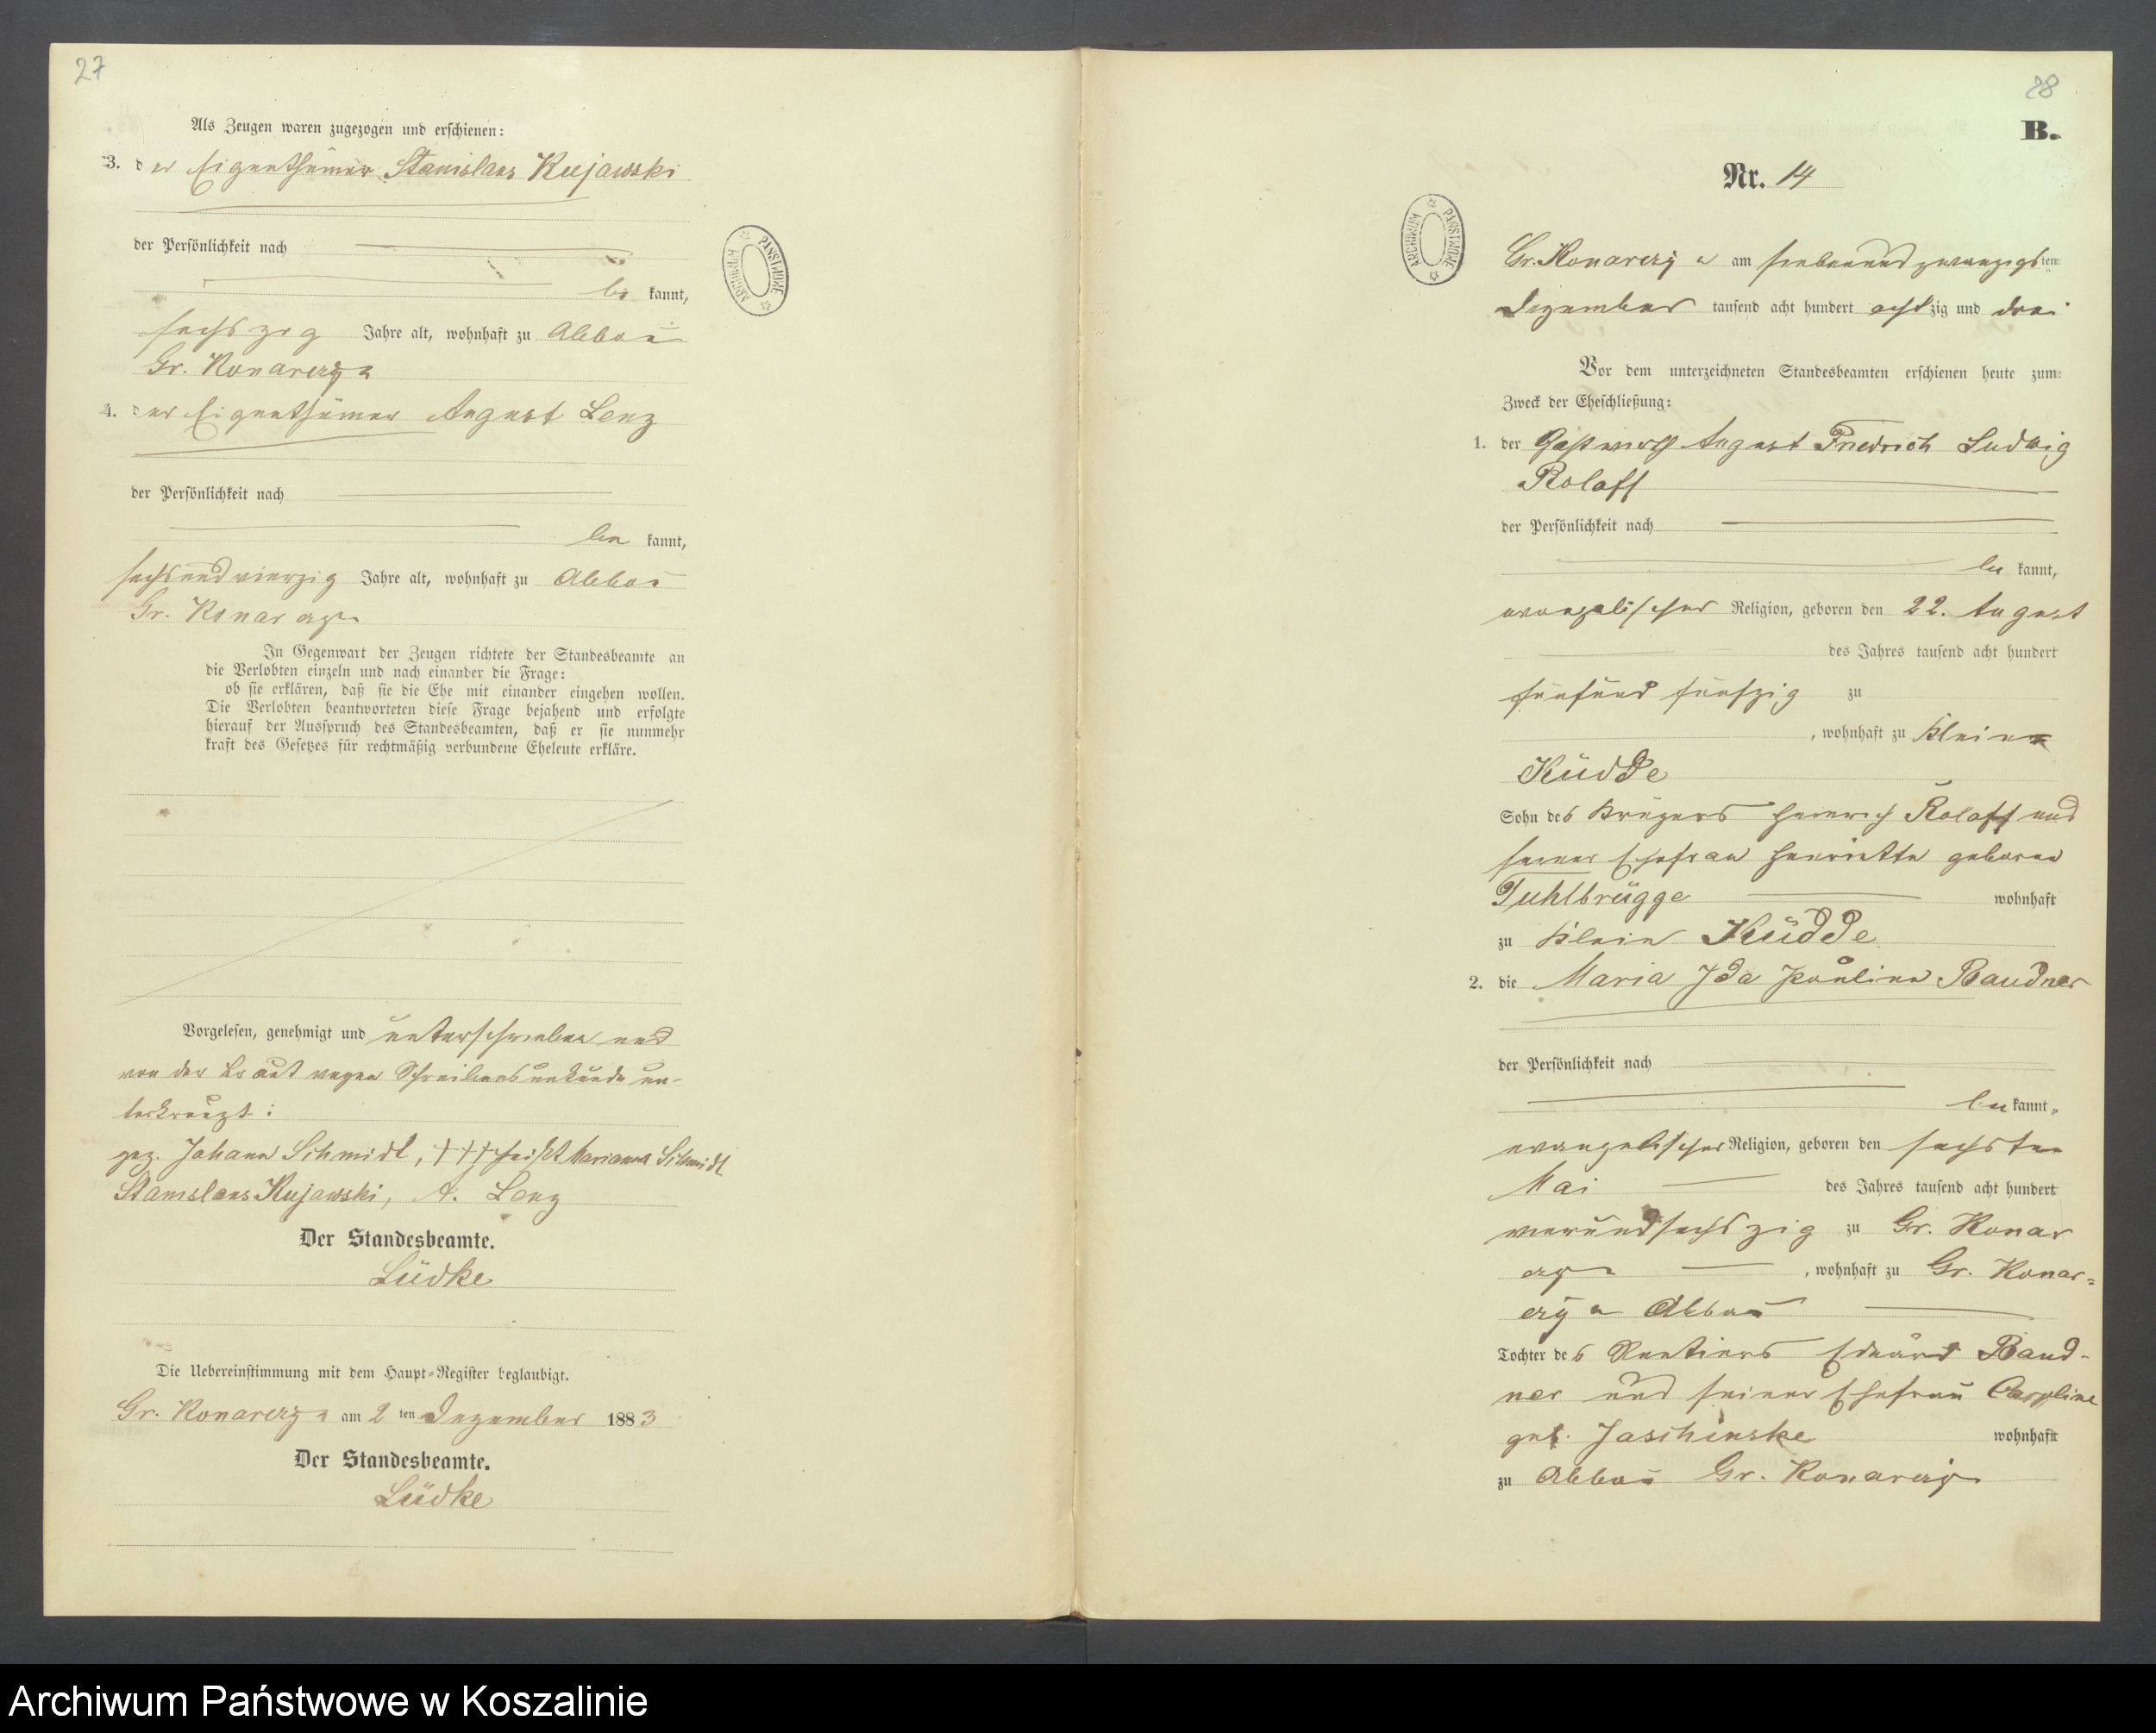 27
Als Zeugen waren zugezogen und erschienen:
3. der Eigenthümer Stanislaus Kujawski
der Persönlichkeit nach
be kannt,
sechszig Jahre alt, wohnhaft zu Abbau
Gr. Konarczyn
4. der Eigenthümer August Lenz
der Persönlichkeit nach
be kannt,
sechsundvierzig Jahre alt, wohnhaft zu Abbau
Gr. Konarczyn
In Gegenwart der Zeugen richtete der Standesbeamte an
die Verlobten einzeln und nach einander die Frage:
ob sie erklären, daß sie die Ehe mit einander eingehen wollen.
Die Verlobten beantworteten diese Frage bejahend und erfolgte
hierauf der Ausspruch des Standesbeamten, daß er sie nunmehr
kraft des Gesetzes für rechtmäßig verbundene Eheleute erkläre.
Vorgelesen, genehmigt und unterschrieben und
von der Braut wegen Schreibensunkunde un-
terkreuzt:
gez. Johann Schmidt, +++ heißt Marianna Schmidt
Stanislaus Kujawski, A. Lenz
Der Standesbeamte.
Lüdke
Die Uebereinstimmung mit dem Haupt-Register beglaubigt.
Gr. Konarczyn am 2 ten Dezember 1883
Der Standesbeamte.
Lüdke
ARCHIWUM PAŃSTWOWE
28
B.
Nr. 14
ARCHIWUM PAŃSTWOWE
Gr. Konarczyn am siebenundzwanzigsten
Dezember tausend acht hundert achtzig und drei
Vor dem unterzeichneten Standesbeamten erschienen heute zum
Zweck der Eheschließung:
1. der Gastwirth August Friedrich Ludwig
Rolaff
der Persönlichkeit nach
be kannt,
evangelischer Religion, geboren den 22. August
des Jahres tausend acht hundert
fünfund fünfzig zu
, wohnhaft zu Klein
Küdde
Sohn des Krügers Heinrich Rolaff und
seiner Ehefrau Henriette geborene
Tuhlbrügge wohnhaft
zu Klein Küdde
2. die Maria Ida Pauline Baudner
der Persönlichkeit nach
be kannt,
evangelischer Religion, geboren den sechsten
Mai des Jahres tausend acht hundert
vierundsechszig zu Gr. Konar
czyn , wohnhaft zu Gr. Konar=
czyn Abbau
Tochter des Rentiers Eduard Baud-
ner und seiner Ehefrau Caroline
geb. Jaschinske wohnhaft
zu Abbau Gr. Konarczyn
Archiwum Państwowe w Koszalinie